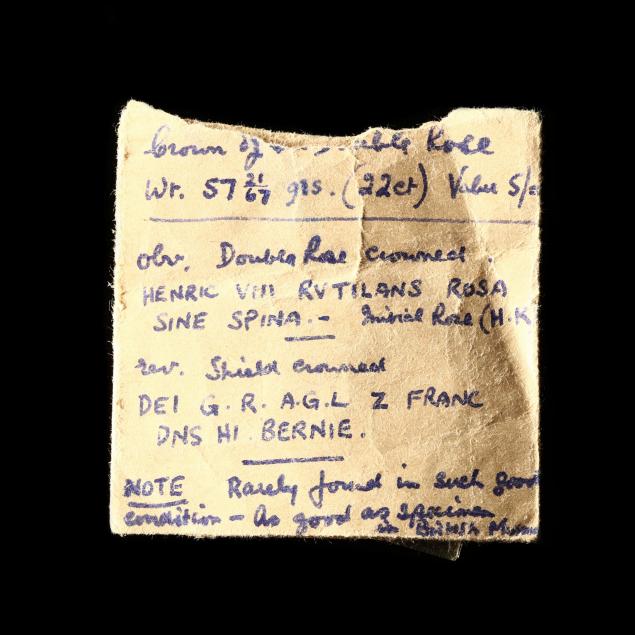 Crown of Double Rose
Wt. 57 21/67 grs. (22ct) Value 5/=
obv. Double Rose crowned.
HENRIC VIII RVTILANS ROSA
SINE SPINA.- Initial Rose (H.K
rev. Shield crowned
DEI G.R. A.G.L Z FRANC
DNS HI.BERNIE.
NOTE Rarely found in such good
condition - As good as specimen
in British